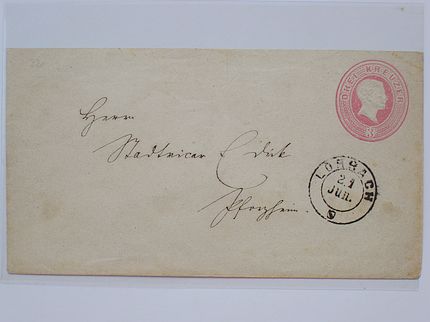 DREI KREUZER
3
Herrn
Stadtvicar Edick
Pforzheim.
LÖRRACH
21
JUN.